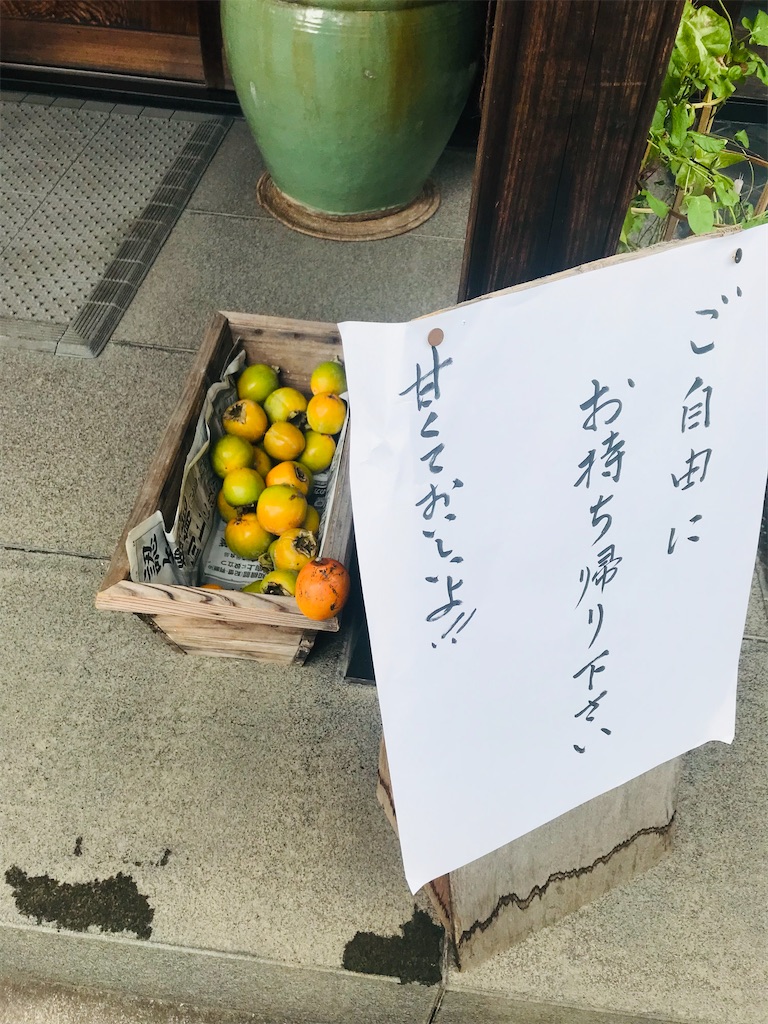 ご自由に
お持ち帰り下さい
甘くておいしいよ!!